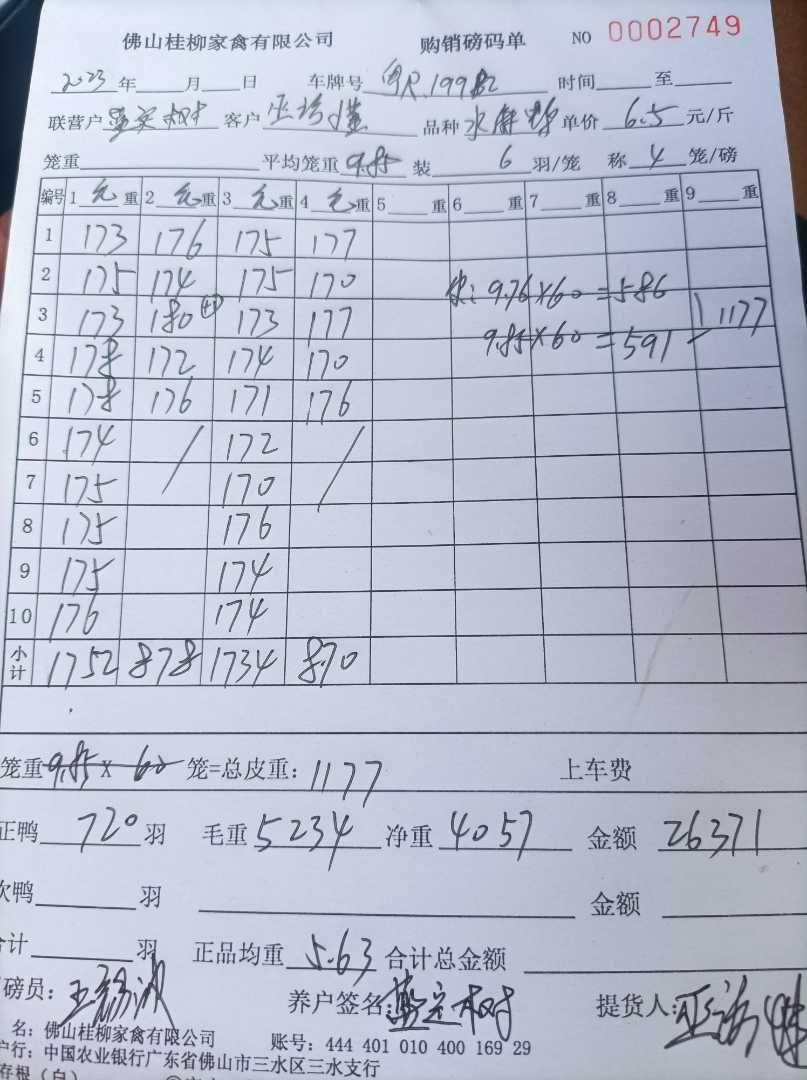 佛山桂柳家禽有限公司 购销磅码单 NO 0002749
2023年 月 日 车牌号 199 时间 至
联营户 客户 品种 水 单价 6.5 元/斤
笼重 平均笼重 9.85 装 6 羽/笼 称 4 笼/磅
编号 1 重 2 重 3 重 4 重 5 重 6 重 7 重 8 重 9 重
1 173 176 175 177
2 175 174 175 170 9.76×60=586
3 173 180 173 177 1177
9.85×60=591
4 178 172 174 170
5 178 176 171 176
6 174 / 172 /
7 175 170
8 175 176
9 175 174
10 176 174
小计 1752 878 1734 870
笼重 9.85 X 60 笼=总皮重: 1177 上车费
正鸭 720 羽 毛重 5234 净重 4057 金额 26371
次鸭 羽 金额
合计 羽 正品均重 5.63 合计总金额
磅员: 养户签名: 提货人:
名: 佛山桂柳家禽有限公司 账号: 444 401 010 400 169 29
户行: 中国农业银行广东省佛山市三水区三水支行
存根(白)